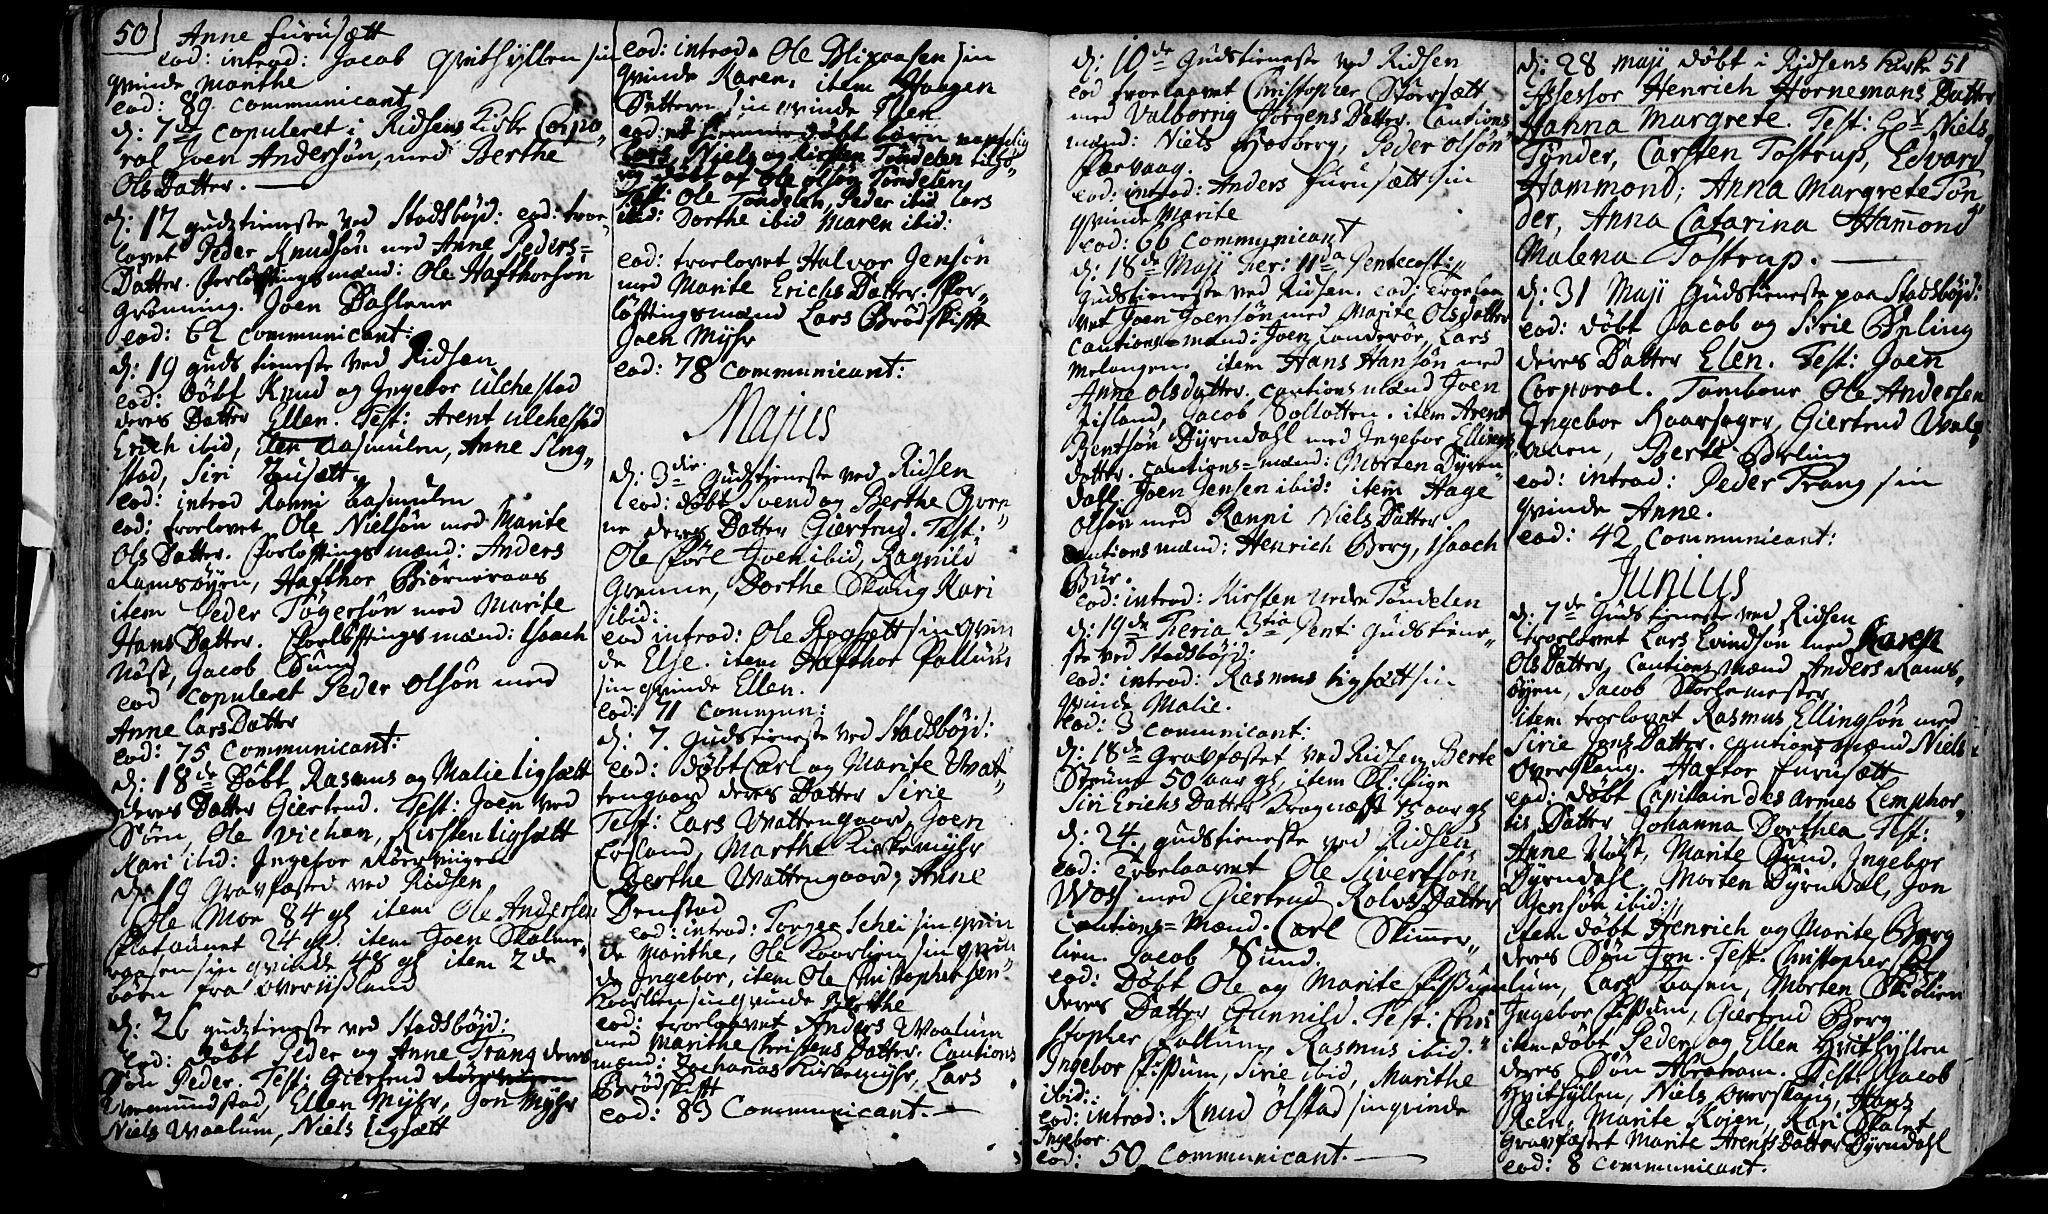 50
Anne furusætt
eod: introd: Jacob Qvithyllen sin
qvinde Marithe
eod: 89 communicant
d: 7de copuleret i Ridsens Kirke Corpo-
ral Joen Andersøn, med Berthe
Ols Datter.
d: 12 gudztieneste ved Stadsbøjd: eod: troe-
lovet Peder Knudsøn med Anne Peders=
Datter. forløftingsmænd: Ole Hafthorsøn
Grønning. Joen Dahlene
eod: 62 communicant:
d: 19 guds tieneste ved Ridsen
eod: Døbt Knud og Ingebor Ulchestad
deres Datter Ellen. Test: Arent Ulchestad
Erich ibid, Elen Aasmulen, Anne Sing-
stad, Siri
eod: introd Ranni Aasmulen
eod: troelovet Ole Nielsøn med Marite
Ols Datter. Forløftings mænd: Anders
Ramsøyen, Hafthor Biørneraas
item Peder Tøgersøn med Marite
Hans Datter. Forløftings mænd: Isaach
Nøst, Jacob Sund
eod copuleret Peder Olsøn med
Anne Lars Datter
eod: 75 communicant:
d: 18de Døbt Rasmus og Malie Ligsætt
deres Datter Giertrud. Test: Joen ved
Søen, Ole Vichan, Kirsten Ligsætt
Kari ibid: Ingebor Rørviigen
d: 19 Gravfæsted ved Ridsen
Ole Moe 84 gl item Ole Andersen
24 gl: item Joen Skalme-
raasen sin qvinde 48 gl item 2de
børn fra Overusland
d: 26 gudztieneste ved Stadsbøjd:
eod: døbt Peder og Anne Trang deres
Søn Peder. Test: Giertrud
Ellen Myhr, Jon Myhr
Niels Waalum, Niels Ligsætt
eod: introd. Ole Blixaasen sin
qvinde Karen, item Haagen
sin qvinde Ellen
eod: døbt børn
Lars, Niels og Kirsten Tøndelen
døbt af Ole Olsøn Tøndelen
Test: Ole Tøndelen, Peder ibid Lars
ibid: Dorthe ibid Maren ibid:
eod: troelovet Halvor Jensøn
med Marite Erichs Datter. For-
løftingsmænd Lars Brødskift
Joen Myhr
eod: 78 communicant:
Majus
d: 3die Gudztjeneste ved Ridsen
eod: døbt Svend og Berthe Qven-
ne deres Datter Giertrud. Test:
Ole Joen ibid, Ragnild
Qvenne, Dorthe Skaug Kari
ibid:
eod introd: Ole Rogsætt sin qvin
de Else. item Hafthor Fallum
sin qvinde Ellen.
eod: 71 commun:
d: 7. Gudstieneste ved Stadsbøjd:
eod: døbt Carl og Marite Wat-
tengaard deres Datter Sirie
Test: Lars Wattengaard, Joen
Ersland, Marthe Kirkemyhr
Berthe Wattengaard, Anne
Denstad
eod: introd: Torger Schei sin qvin
de Marithe, Ole Kaarlien sin qvin
de Ingebor, item Ole Christophersen
Kaarlien sin qvinde Berthe
eod: troelaavet Anders Waalum
med Marithe Christens Datter. Cautions
mænd: Zacharias Kirkemyhr, Lars
Brødskift
eod: 83 Communicant.
d: 10de Gudstieneste ved Ridsen
eod troelaavet Christopher Størsætt
med Valborrig Jørgens Datter. Cautions
mænd: Niels Hosberg, Peder Olsøn
Færvaag.
eod: introd: Anders Furusætt sin
qvinde Marite
eod: 66 communicant
d: 18de Maji Fer: 11da Pentecost:
Gudstieneste ved Ridsen. eod: Troeloe
vet Joen Joensøn med Marite Olsdatter
Cautions-mænd: Joen Landerøe, Lars
Melangen. item Hans Hansøn med
Anne Olsdatter. cautions mænd Joen
Risland, Jacob Solbotten. item Arent
Bentsøn Dyrndahl med Ingebor Ellings
datter. cautions=mænd: Morten Dyren-
dall. Joen Jensen ibid: item Aage
Olsøn med Ranni Niels Datter
Cautions mænd: Henrich Berg, Isaach
Bur.
eod: introd: Kirsten Nedre Tøndelen
d: 19de Feria 3tia Pent: Gudstiene-
ste ved Stadsbøjd:
eod: introd: Rasmus Ligsætt sin
qvinde Malie.
eod: 3 communicant:
d: 18de Gravfæstet ved Ridsen Berte
Strøms 50 aar gl. item Ol: Pige
Siri Erichs Datter Kragnæst 73 aar gl
d: 24. gudstieneste ved Ridsen
eod: Troelaavet Ole Sivertsøn
Woll med Giertrud Rolvs Datter
Cautions=Mænd. Carl Skimmer-
lien. Jacob Sund.
eod: Døbt Ole og Marite Fissum
deres Datter Gunnild. Test: Chri
stopher Fallum, Rasmus ibid:
Ingebor Fissum, Sirie ibid, Marithe
ibid:
eod: introd: Knud Ølstad sin qvinde
Ingebor
eod: 50 communicant.
51
d: 28 Maji Døbt i Ridsens Kirke
Assessor Henrich Hornemans Datter
Hanna Margrete. Test: Hr Niels
Tønder, Carsten Tostrup, Edvard
Hammond; Anna Margrete Tøn
der, Anna Catarina Hammond
Malena Tostrup.
d: 31 Maji Gudstieneste paa Stadsbøjd:
eod: døbt Jacob og Sirie Opling
deres Datter Elen. Test: Joen
Corporal. Tambour Ole Andersen
Ingebor Haarsager, Giertrud
Berte Opling
eod: introd: Peder Trang sin
qvinde Anne.
eod: 42 communicant:
Junius
d: 7de Gudstieneste ved Ridsen
troelovet Lars Evindsøn med Karen
Ols Datter, Cautions mænd Anders Rams-
øyen, Jacob Skolemester
item troelovet Rasmus Ellingsøn med
Sirie Jons Datter. cautions mænd Niels
Overskaug. Haftor Furusætt
eod: døbt Capitain des Armes Lemphor-
tis Datter Johanna Dorthea Test:
Anne Nøst, Marite Sund, Ingebor
Dyrndahl, Morten Dyrndal, Jon
Jensøn ibid:
item døbt Henrich og Marite Berg
deres Søn Jon. Test: Christopher
lum, Lars Aasen, Morten Skiølien
Ingebor Fissum, Giertrud Berg
item døbt Peder og Ellen Hvithyllen
deres Søn Abraham. Test: Jacob
Hvithyllen, Niels Overskaug, Hans
Rein, Marite Rojen, Kari Skalet
Gravfæstet Marite Arents Datter Dyrndahl
eod: 8 communicant.